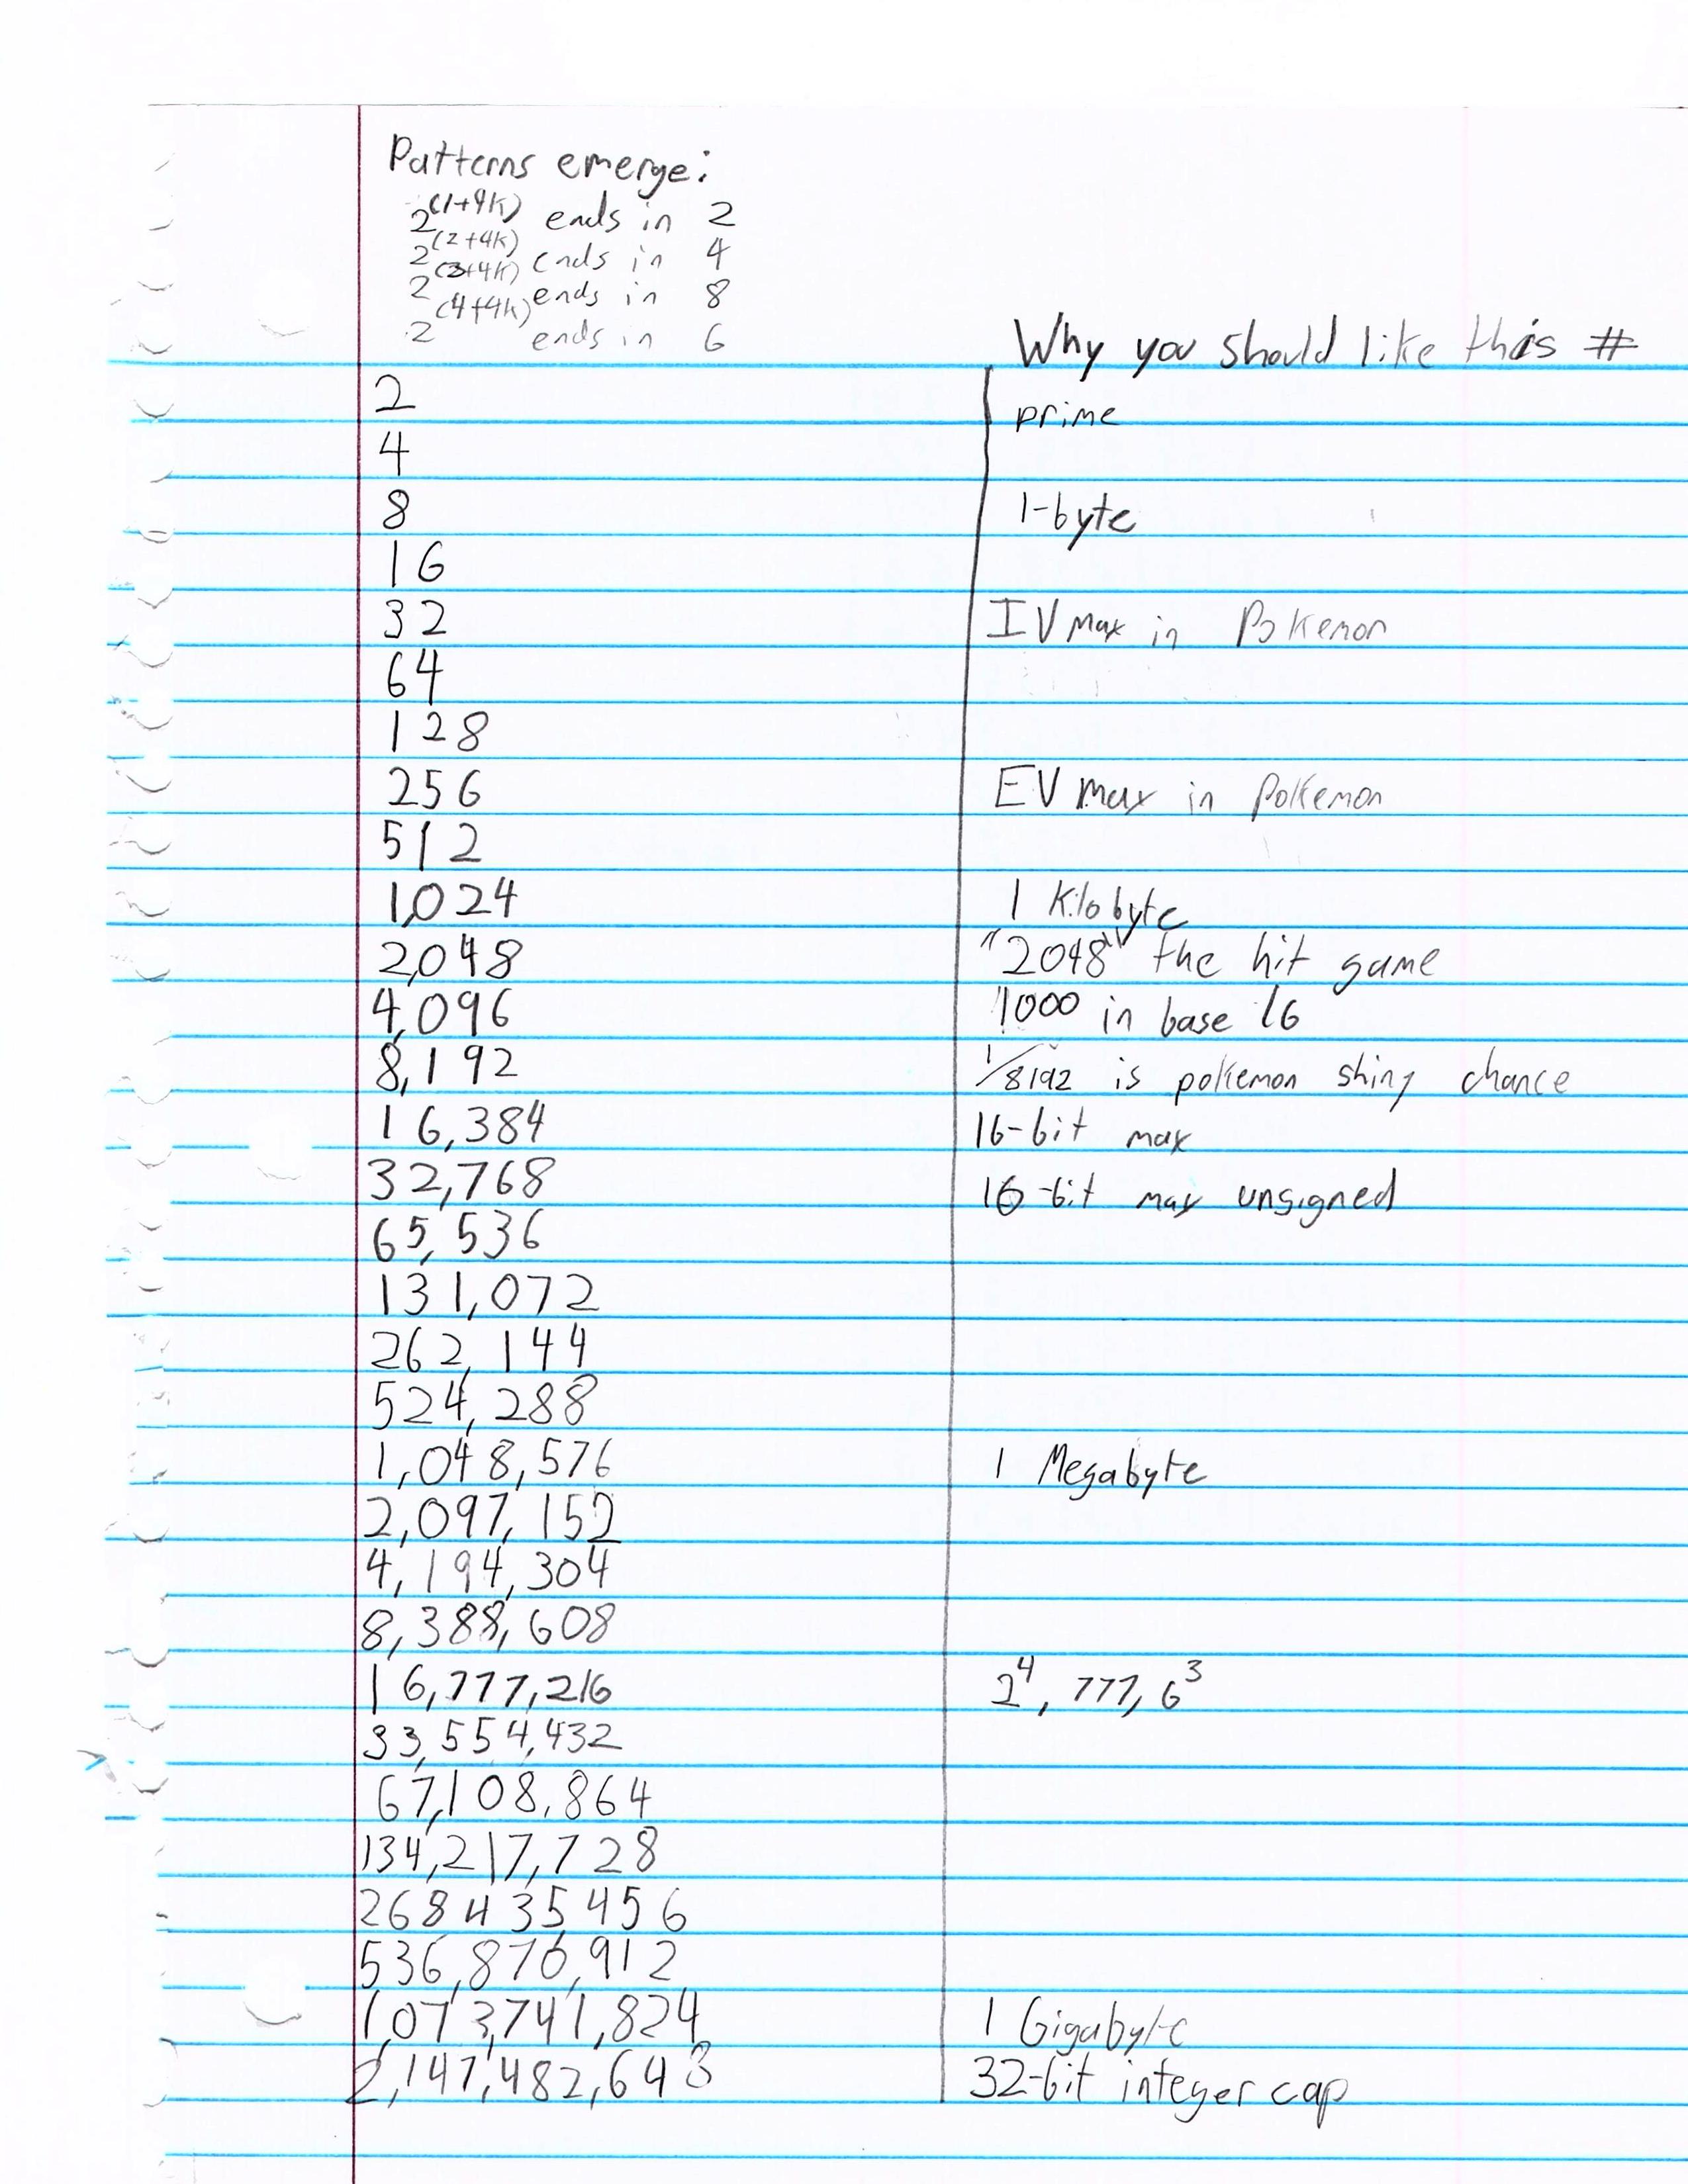 Patterns emerge:
2^(1+4k) ends in 2
2^(2+4k) ends in 4
2^(3+4k) ends in 8
2^(4+4k) ends in 6
Why you should like this #
2 prime
4
8 1-byte
16
32 IV max in Pokemon
64
128
256 EV max in Pokemon
512
1,024 1 Kilobyte
2,048 "2048" the hit game
4,096 1000 in base 16
8,192 1/8192 is pokemon shiny chance
16,384 16-bit max
32,768 16-bit max unsigned
65,536
131,072
262,144
524,288
1,048,576 1 Megabyte
2,097,152
4,194,304
8,388,608
16,777,216 2^4, 777, 6^3
33,554,432
67,108,864
134,217,728
268435,456
536,870,912
1,073,741,824 1 Gigabyte
2,147,482,648 32-bit integer cap